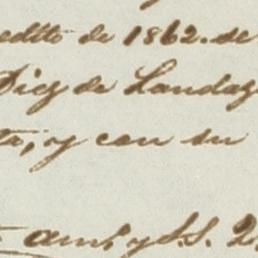 edito de 1862. de
Diez de Landaz
ta, y con su
am.º y S. S. 2